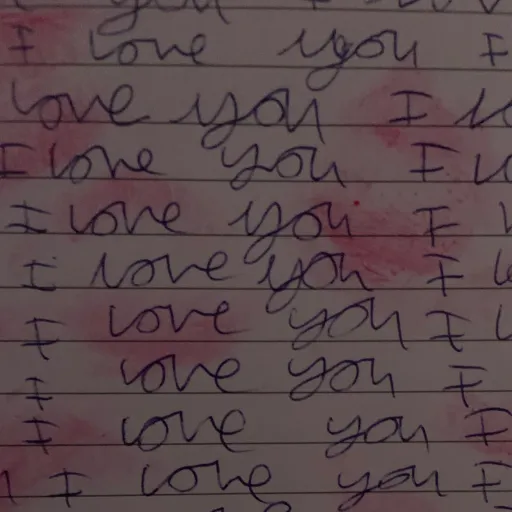 you I love
I love you I
love you I
I love you I
I love you I
I love you I
I love you I
I love you I
I love you I
I love you I